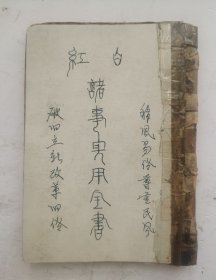 紅白
諸事専用全書
移風易俗尊重民家
破四立新改革四俗